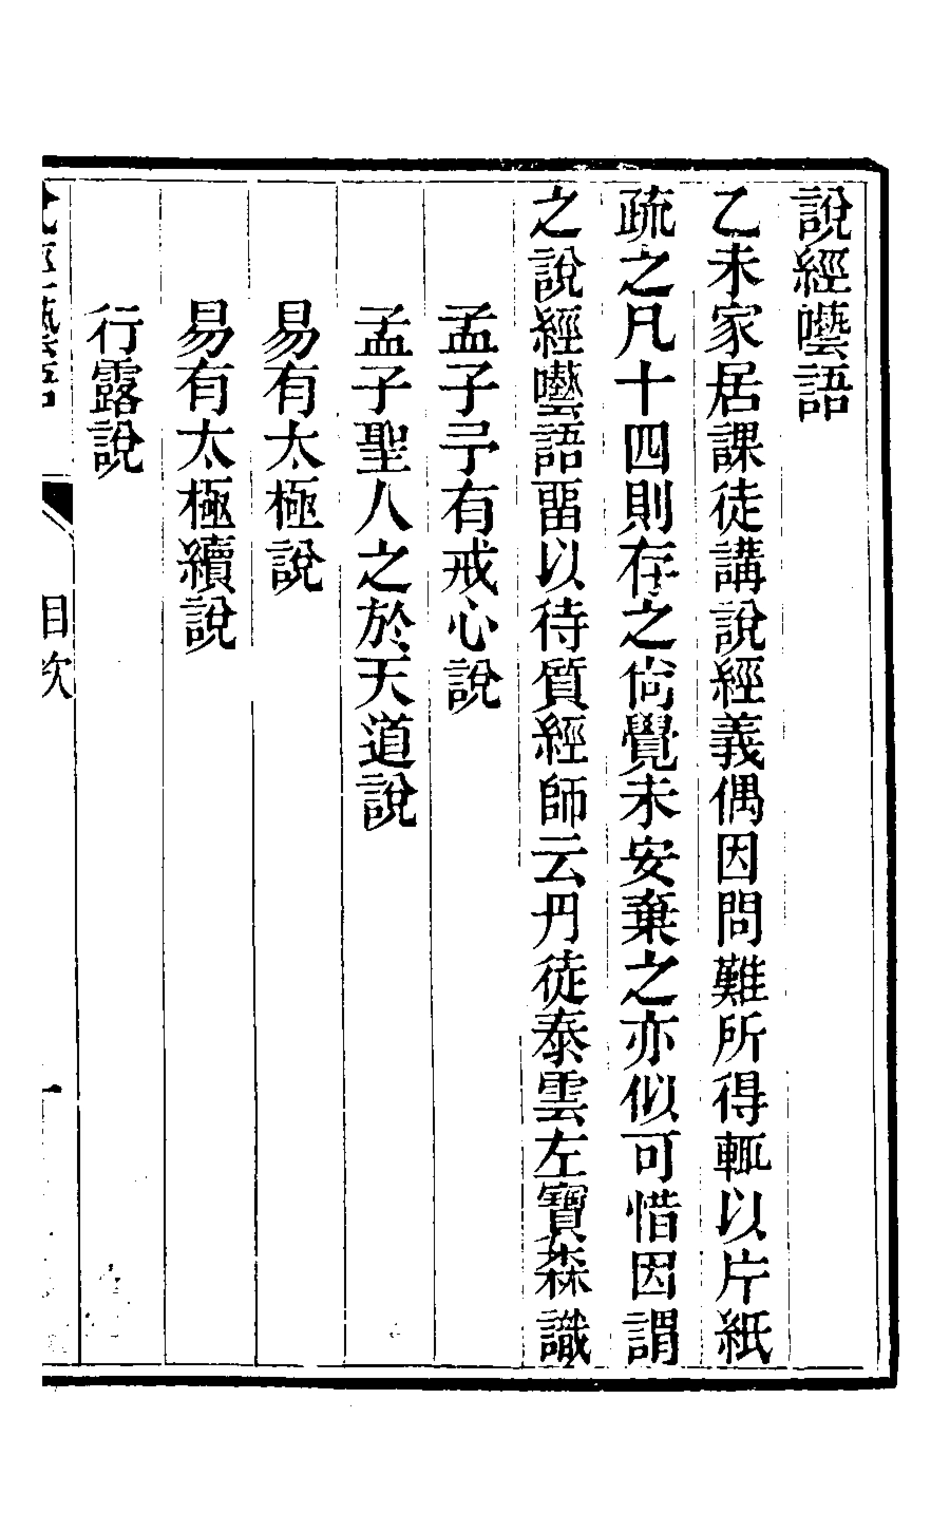 說經囈語
乙未家居課徒講說經義偶因問難所得輒以片紙
疏之凡十四則存之尙覺未安棄之亦似可惜因謂
之說經囈語畱以待質經師云丹徒泰雲左寶森識
孟子予有戒心說
孟子聖人之於天道說
易有太極說
易有太極續說
行露說
目次
一